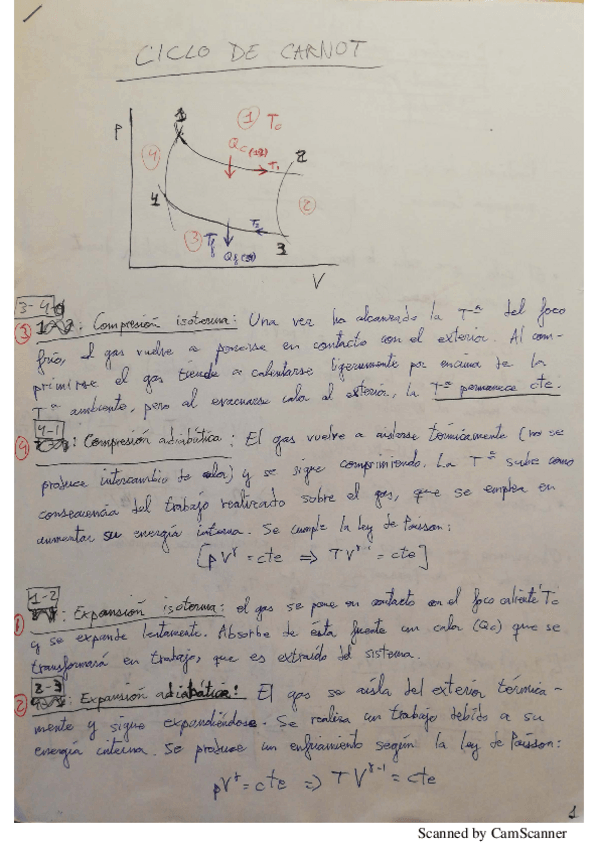 CICLO DE CARNOT
P
1
① Tc
Qc(12)
2
T1
④
②
4
③
3
V
3-4
③ : Compresión isoterma: Una vez ha alcanzado la Tª del foco
frío, el gas vuelve a ponerse en contacto con el exterior. Al com-
primirse el gas tiende a calentarse ligeramente por encima de la
Tª ambiente, pero al evacuarse calor al exterior, la Tª permanece cte.
4-1
④ : Compresión adiabática: El gas vuelve a aislarse térmicamente (no se
produce intercambio de calor) y se sigue comprimiendo. La Tª sube como
consecuencia del trabajo realizado sobre el gas, que se emplea en
aumentar su energía interna. Se cumple la ley de Poisson:
[pVᵞ = cte ⇒ TVᵞ⁻¹ = cte]
1-2
① : Expansión isoterma: el gas se pone en contacto con el foco caliente Tc
y se expande lentamente. Absorbe de ésta fuente un calor (Qc) que se
transformará en trabajo, que es extraído del sistema.
2-3
② : Expansión adiabática: El gas se aísla del exterior térmica-
mente y sigue expandiéndose. Se realiza un trabajo debido a su
energía interna. Se produce un enfriamiento según la ley de Poisson:
pVᵞ = cte ⇒ TVᵞ⁻¹ = cte
1
Scanned by CamScanner